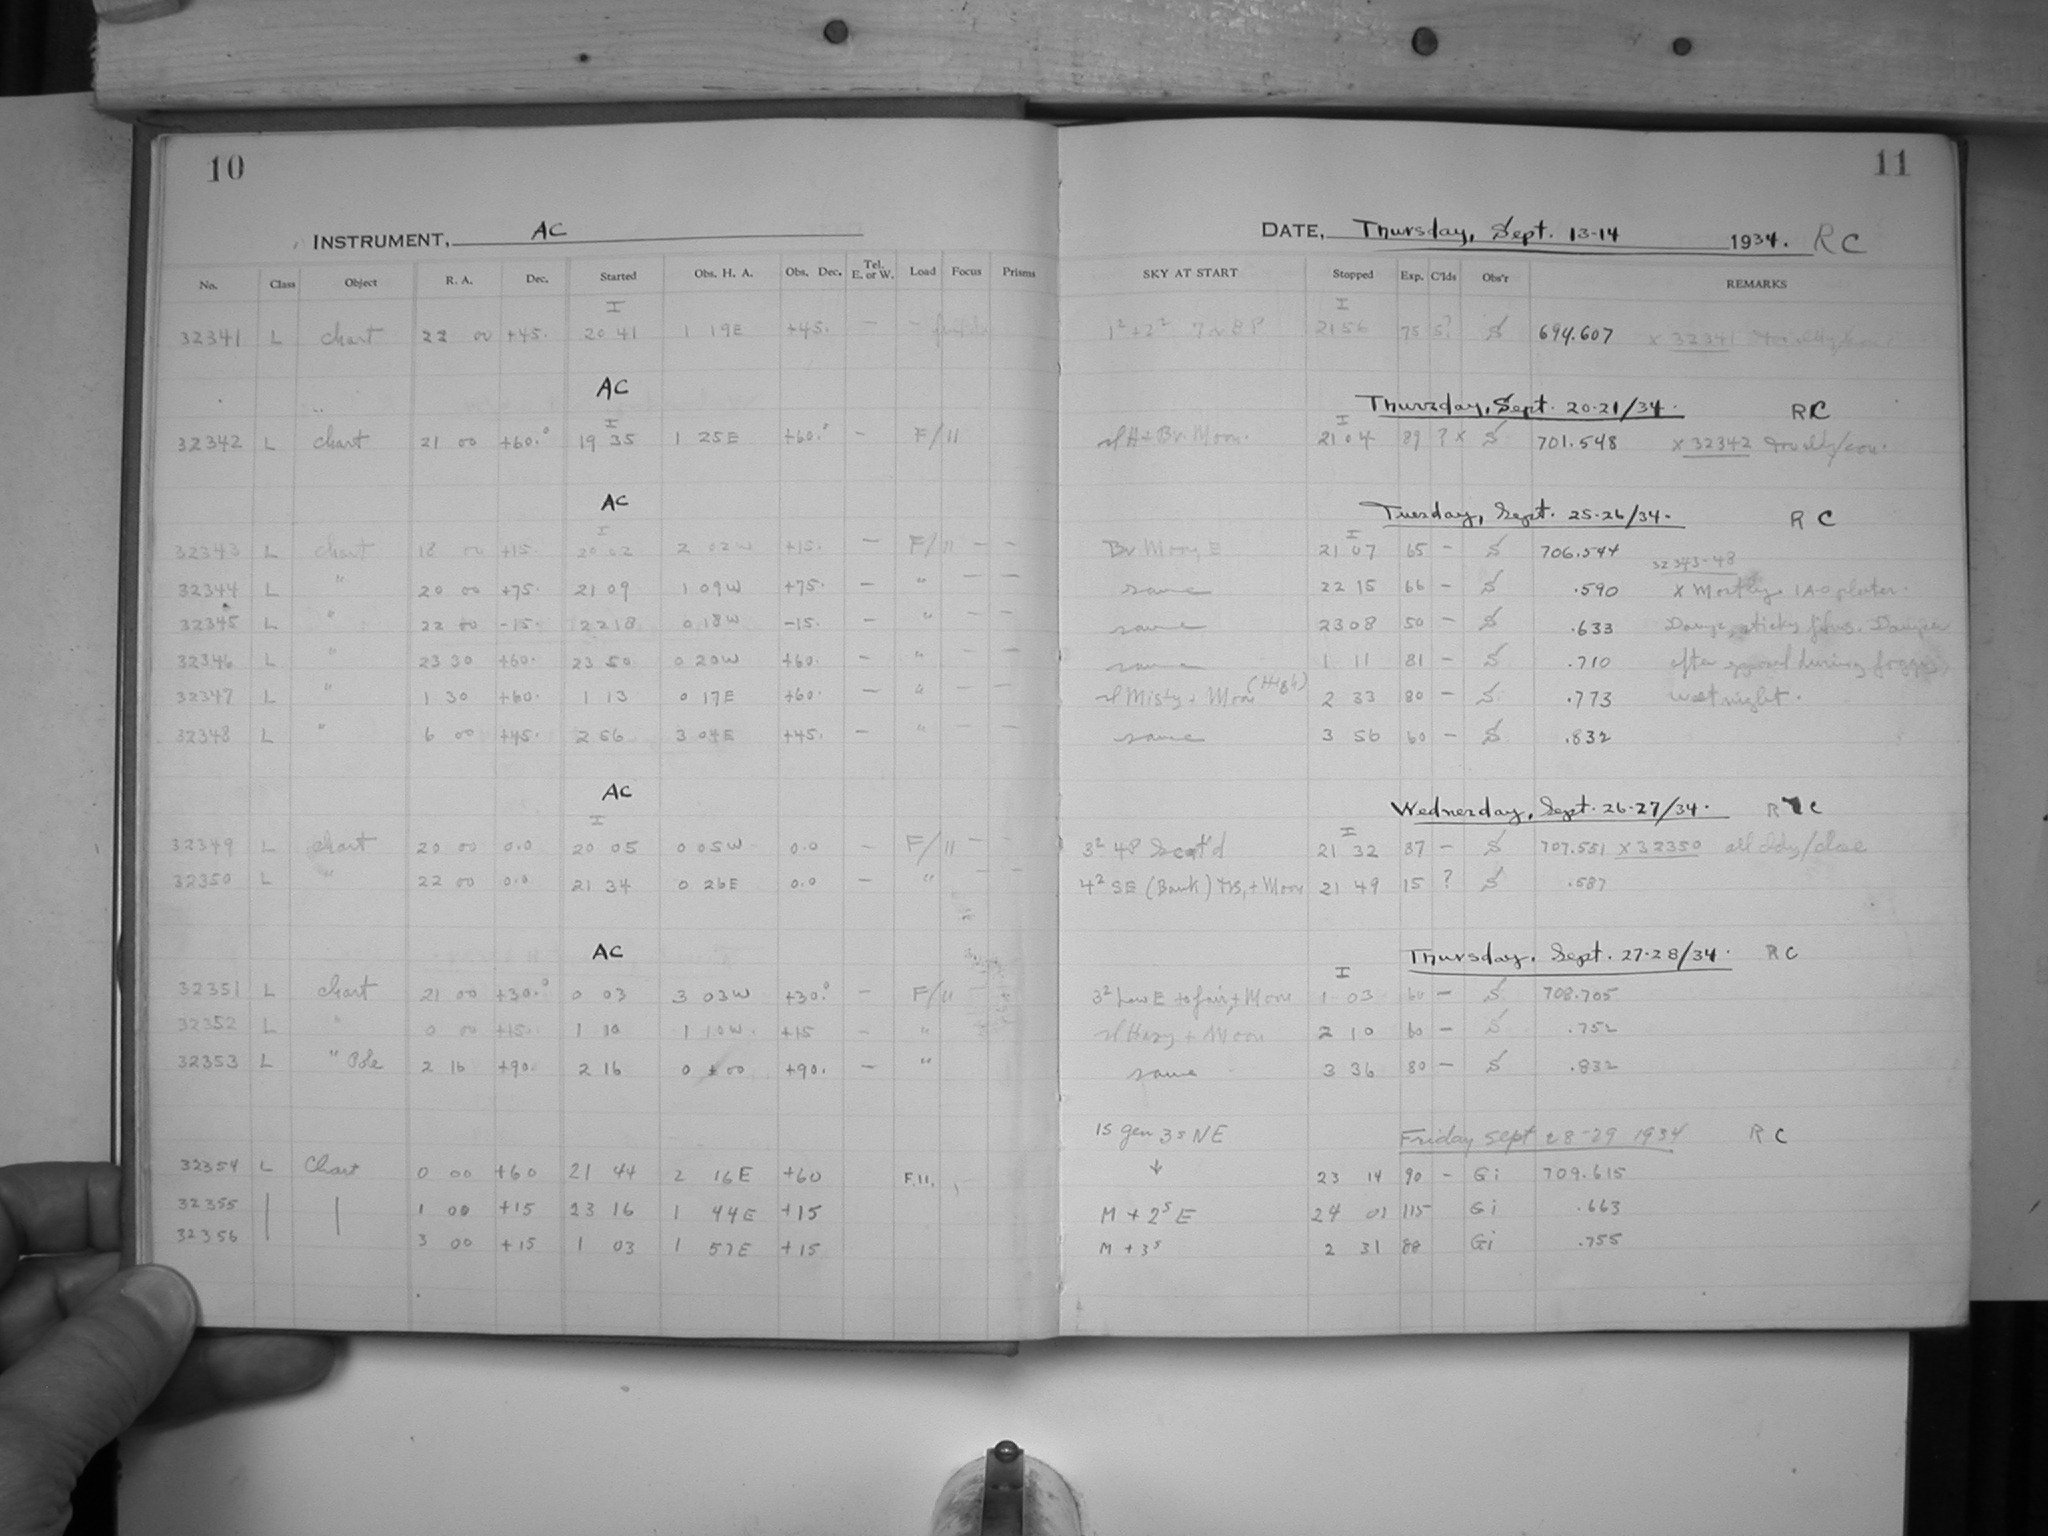 10
11
INSTRUMENT, AC
DATE, Thursday, Sept. 13-14 1934. RC
No. Class Object R. A. Dec. Started Obs. H. A. Obs. Dec. Tel. E. or W. Load Focus Prisms SKY AT START Stopped Exp. C'lds Obs'r REMARKS
I I
32341 L chart 22 00 +45. 20 41 1 19E +45. — 1² +2² 21 56 75 S? S 694.607 x 32341
AC Thursday, Sept. 20-21/34. RC
I I
32342 L chart 21 00 +60.° 19 35 1 25E +60.° — F/11 sl H + Br. Moon. 21 04 89 ? x S 701.548 x 32342
AC Tuesday, Sept. 25-26/34. RC
I I
32343 L chart 18 00 +15. 20 02 2 02W +15. — F/11 — — Br Moon, E 21 07 65 — S 706.544
32343-48
32344 L " 20 00 +75. 21 09 1 09W +75. — " — — same 22 15 66 — S .590 x Mostly IAO plates.
32345 L " 22 00 -15. 22 18 0 18W -15. — " same 23 08 50 — S .633 sticky films.
32346 L " 23 30 +60. 23 50 0 20W +60. — " — — same 1 11 81 — S .710 after exposed during foggy
32347 L " 1 30 +60. 1 13 0 17E +60. — " — — sl Misty + Moon (High) 2 33 80 — S .773 wet night.
32348 L " 6 00 +45. 2 56 3 04E +45. — " — — same 3 56 60 — S .832
AC Wednesday, Sept. 26-27/34. R C
I I
32349 L chart 20 00 0.0 20 05 0 05W 0.0 — F/11 — — 3² 4P Scat'd 21 32 87 — S 707.551 x 32350
32350 L " 22 00 0.0 21 34 0 26E 0.0 — " — — 4² SE (Bank) + Moon 21 49 15 ? S .587
AC Thursday, Sept. 27-28/34. RC
I
32351 L chart 21 00 +30.° 0 03 3 03W +30.° — F/11 3² Low E to fair, + Moon 1 03 60 — S 708.705
32352 L " 0 00 +15. 1 10 1 10W. +15 — " sl Hazy + Moon 2 10 60 — S .752
32353 L " Pole 2 16 +90. 2 16 0 ± 00 +90. — " same 3 36 80 — S .832
1s gen 3s NE Friday Sept 28-29 1934 RC
32354 L Chart 0 00 +60 21 44 2 16E +60 F.11. ↓ 23 14 90 — Gi 709.615
32355 1 00 +15 23 16 1 44E +15 M + 2ˢ E 24 01 115 Gi .663
32356 3 00 +15 1 03 1 57E +15 M + 3ˢ 2 31 88 Gi .755